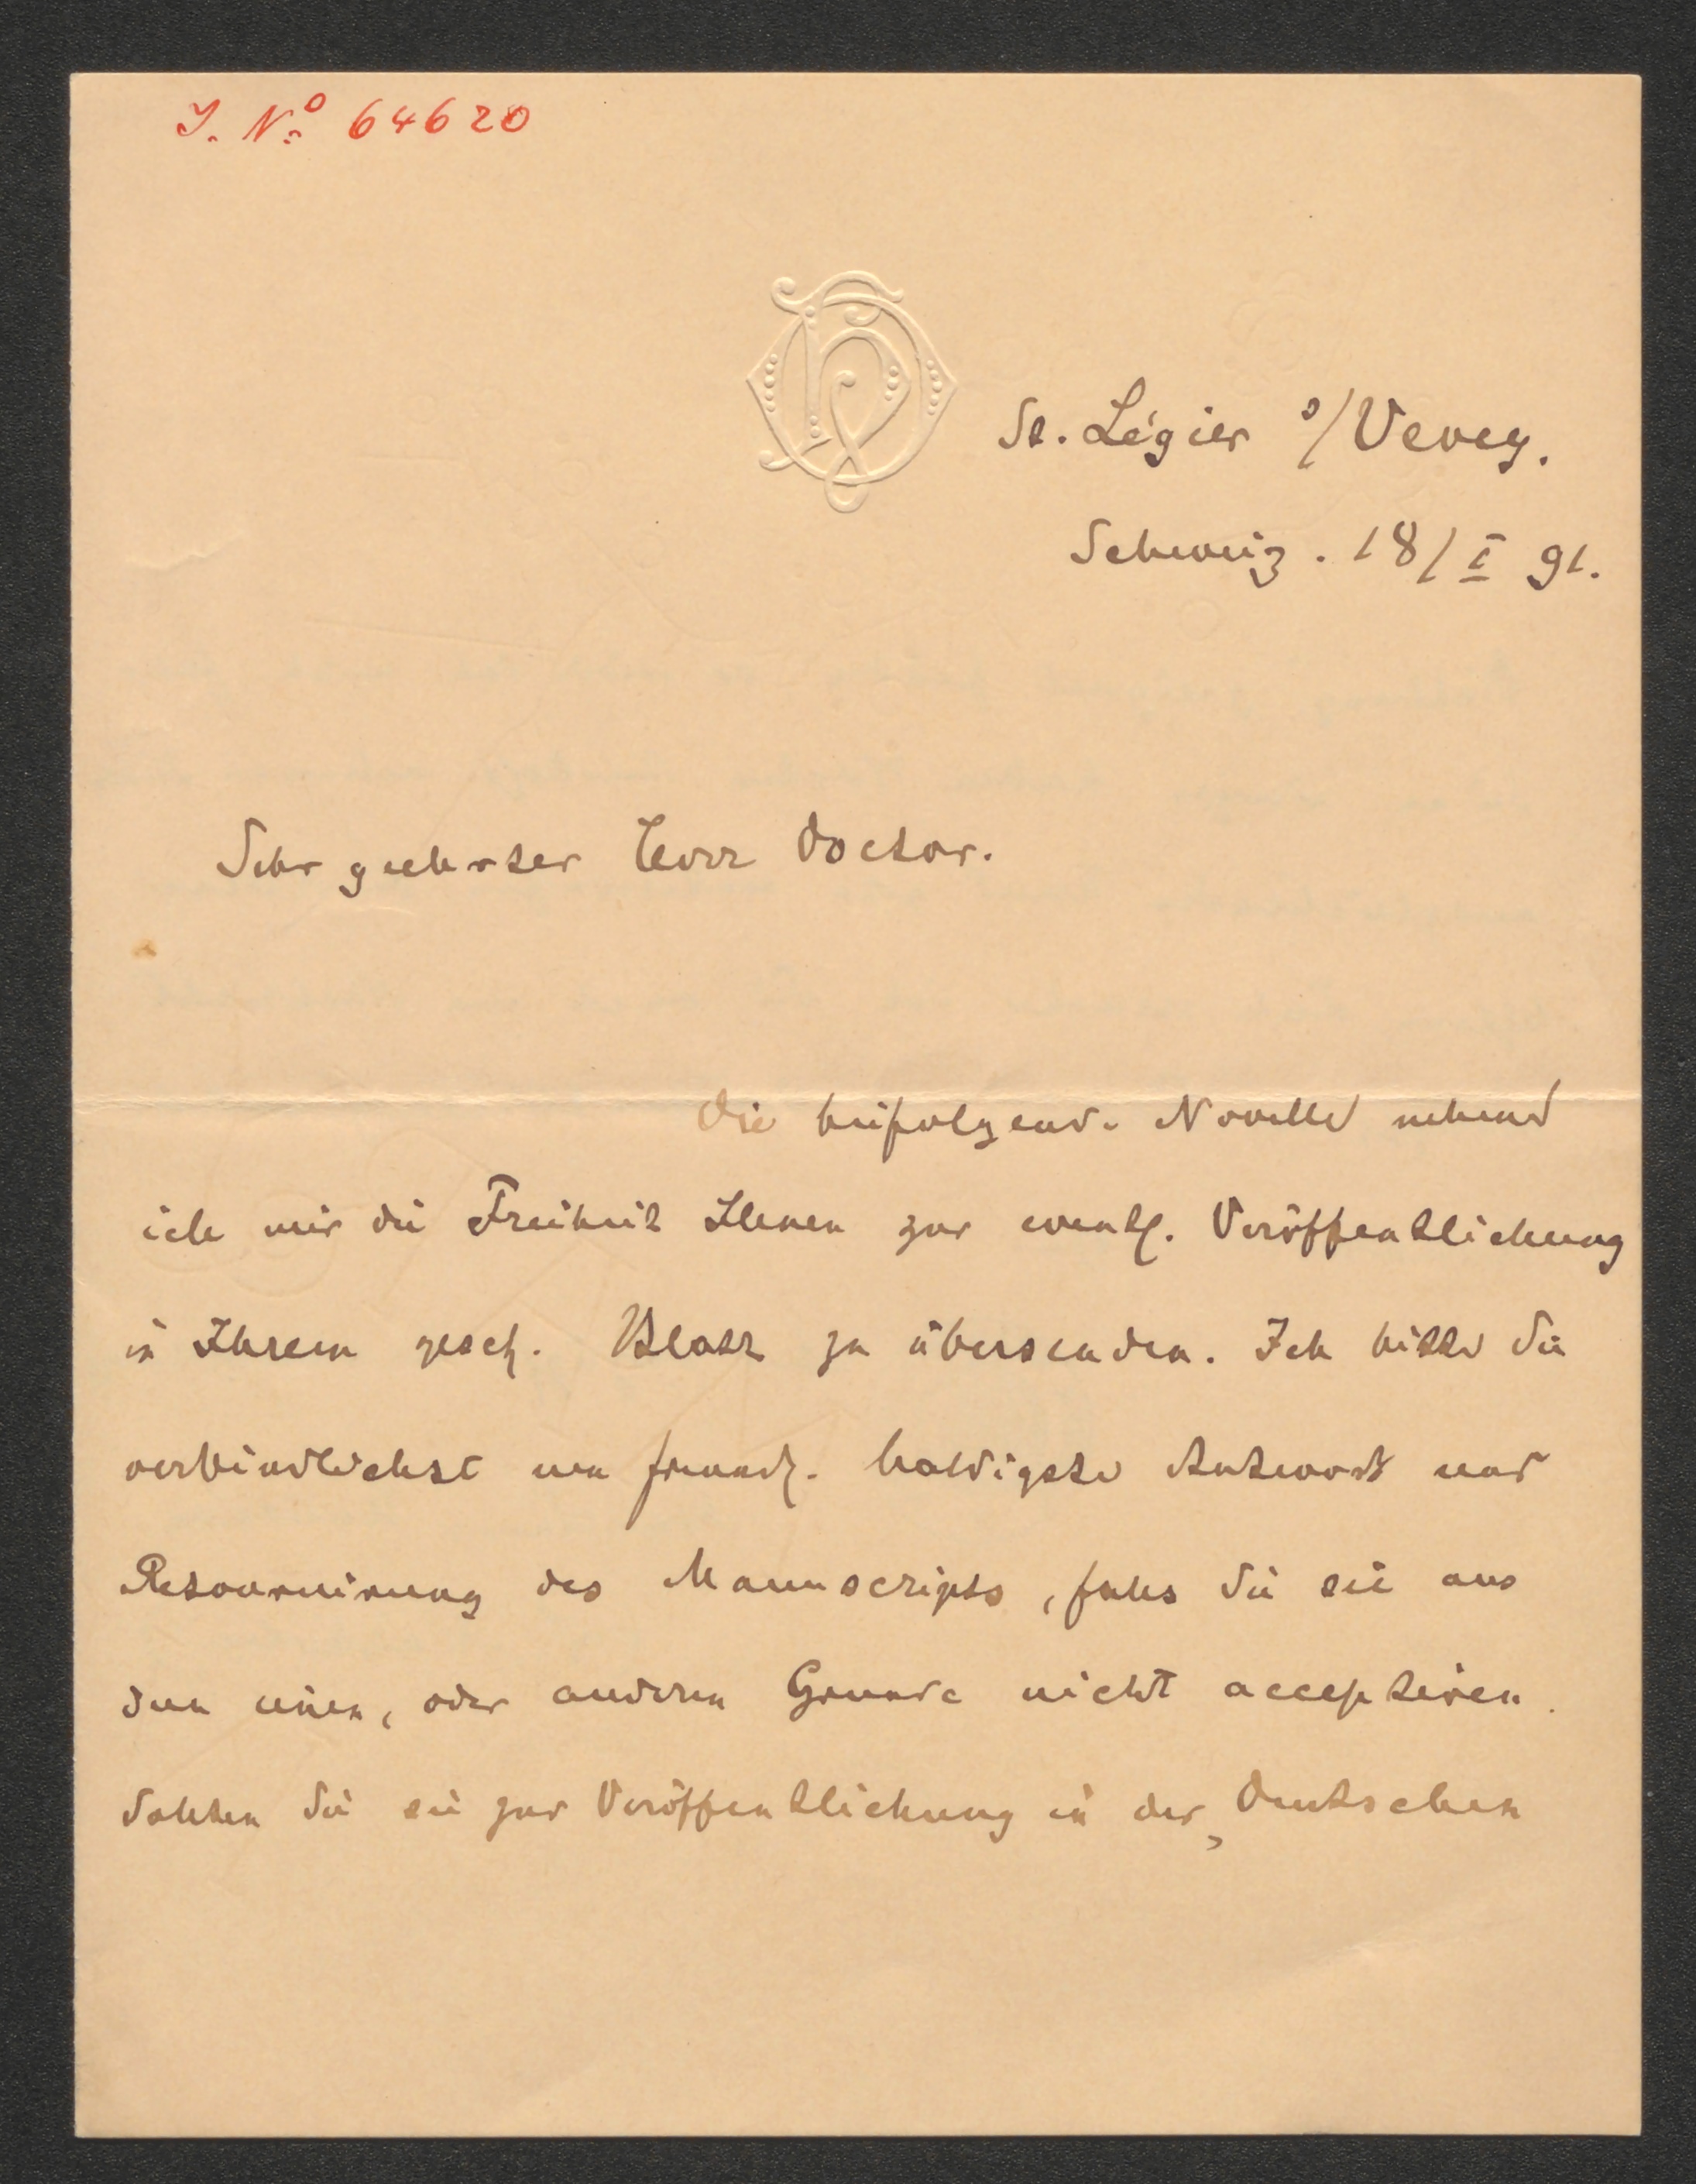 J. No 64620
St. Légier s/Vevey.
Schweiz. 18/I 91.
Sehr geehrter Herr Doctor.
Die beifolgende Novelle nehme
ich mir die Freiheit Ihnen zur event. Veröffentlichung
in Ihrem gesch. Blatt zu übersenden. Ich bitte Sie
verbindlichst um freundl. baldigste Antwort und
Retournirung des Manuscripts, falls Sie sie aus
dem einen, oder anderen Grunde nicht acceptiren.
Sollten Sie sie zur Veröffentlichung in der „Deutschen